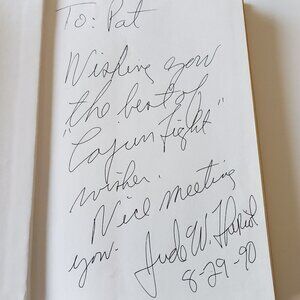 To: Pat
Wishing you
the best of
"Cajun Fight"
wishes.
Nice meeting
you. Judo W.
8-29-90